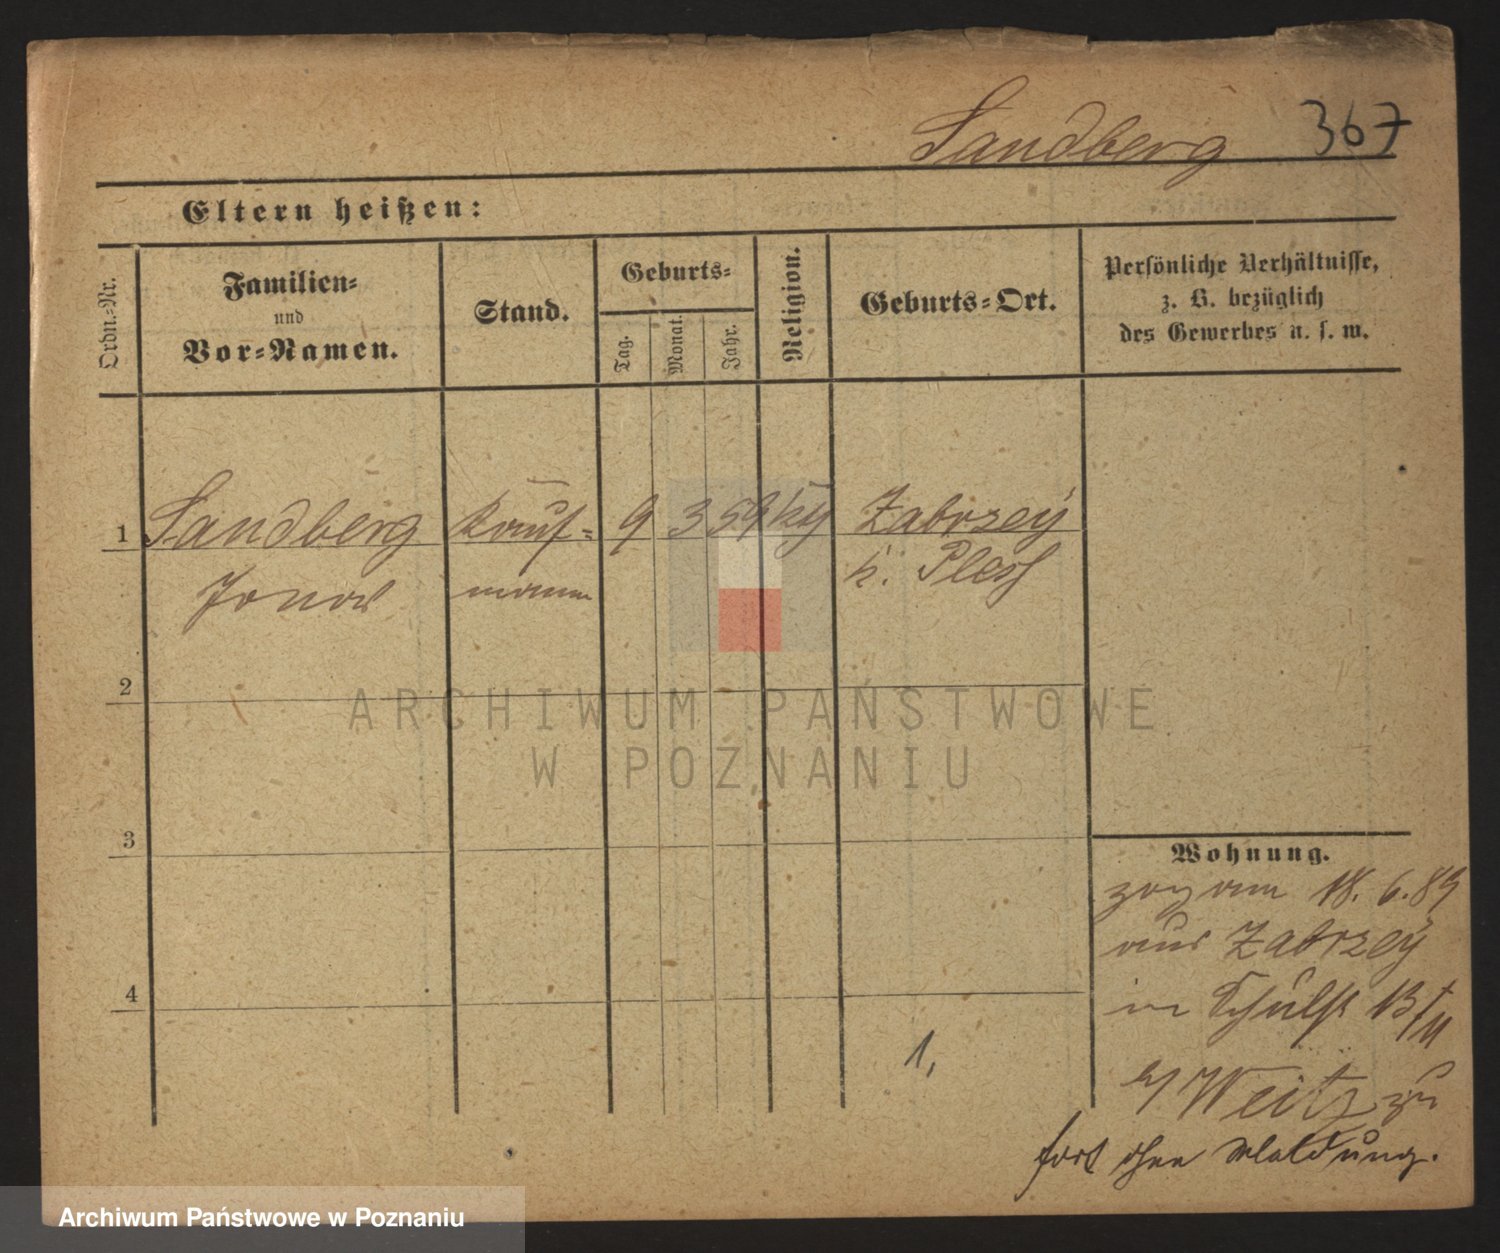 Sandberg 367
Eltern heißen:
Ordn.-Nr.
Familien-
und
Vor-Namen.
Stand.
Geburts-
Tag.
Monat.
Jahr.
Religion.
Geburts-Ort.
Persönliche Verhältnisse,
z. B. bezüglich
des Gewerbes u. s. w.
1 Sandberg Kauf- 9 3 59 Zabrzey
Jonas mann b. Pless
2
3
4
Wohnung.
zog am 18. 6. 89
aus Zabrzey
in Schulstr 13/II
b/ Weitz zu
fort ohne Meldung.
1,
ARCHIWUM PAŃSTWOWE
W POZNANIU
Archiwum Państwowe w Poznaniu